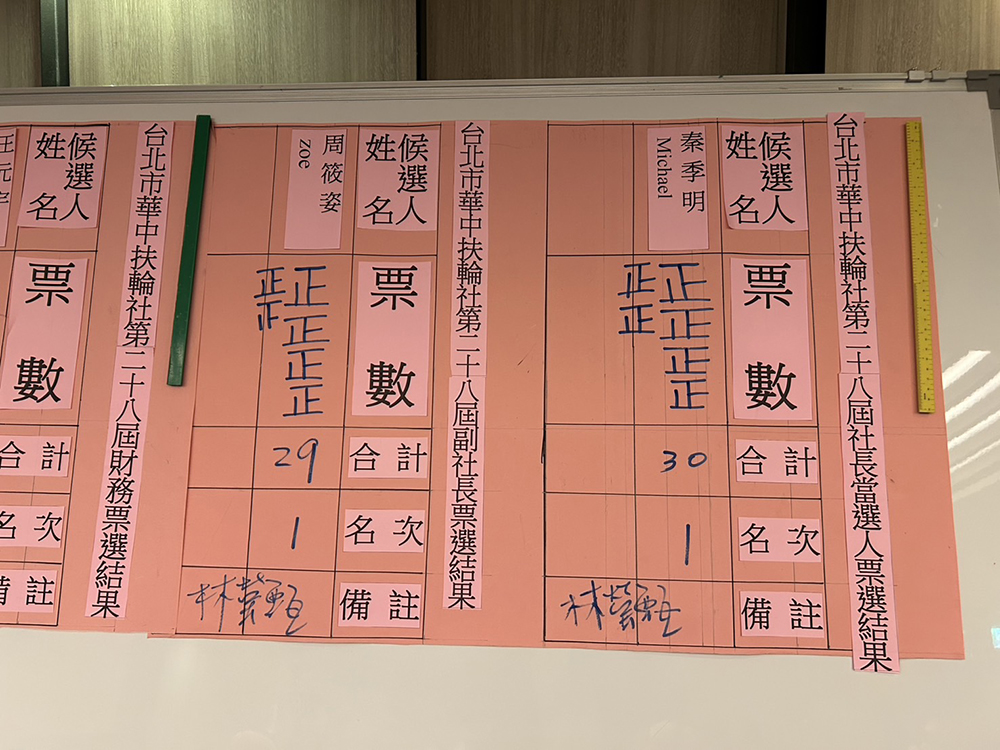 台北市華中扶輪社第二十八屆社長當選人票選結果
候選人姓名
秦季明
Michael
票數
正正正正
正正
合計
30
名次
1
備註
台北市華中扶輪社第二十八屆副社長票選結果
候選人姓名
周筱姿
zoe
票數
正正正正
正正
合計
29
名次
1
備註
台北市華中扶輪社第二十八屆財務票選結果
候選人姓名
票數
合計
名次
備註